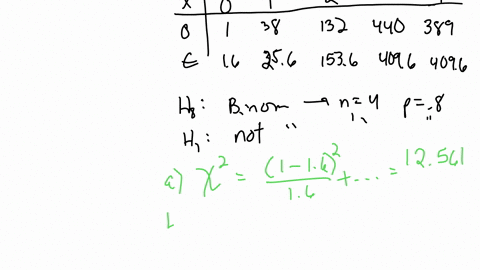 X 0 1 2
O 1 38 132 440 389
E 16 25.6 153.6 409.6 409.6
H₀: Binom → n=4 p=.8
H₁: not "  "  "
a) χ² = (1-1.6)²/1.6 + ... = 12.561